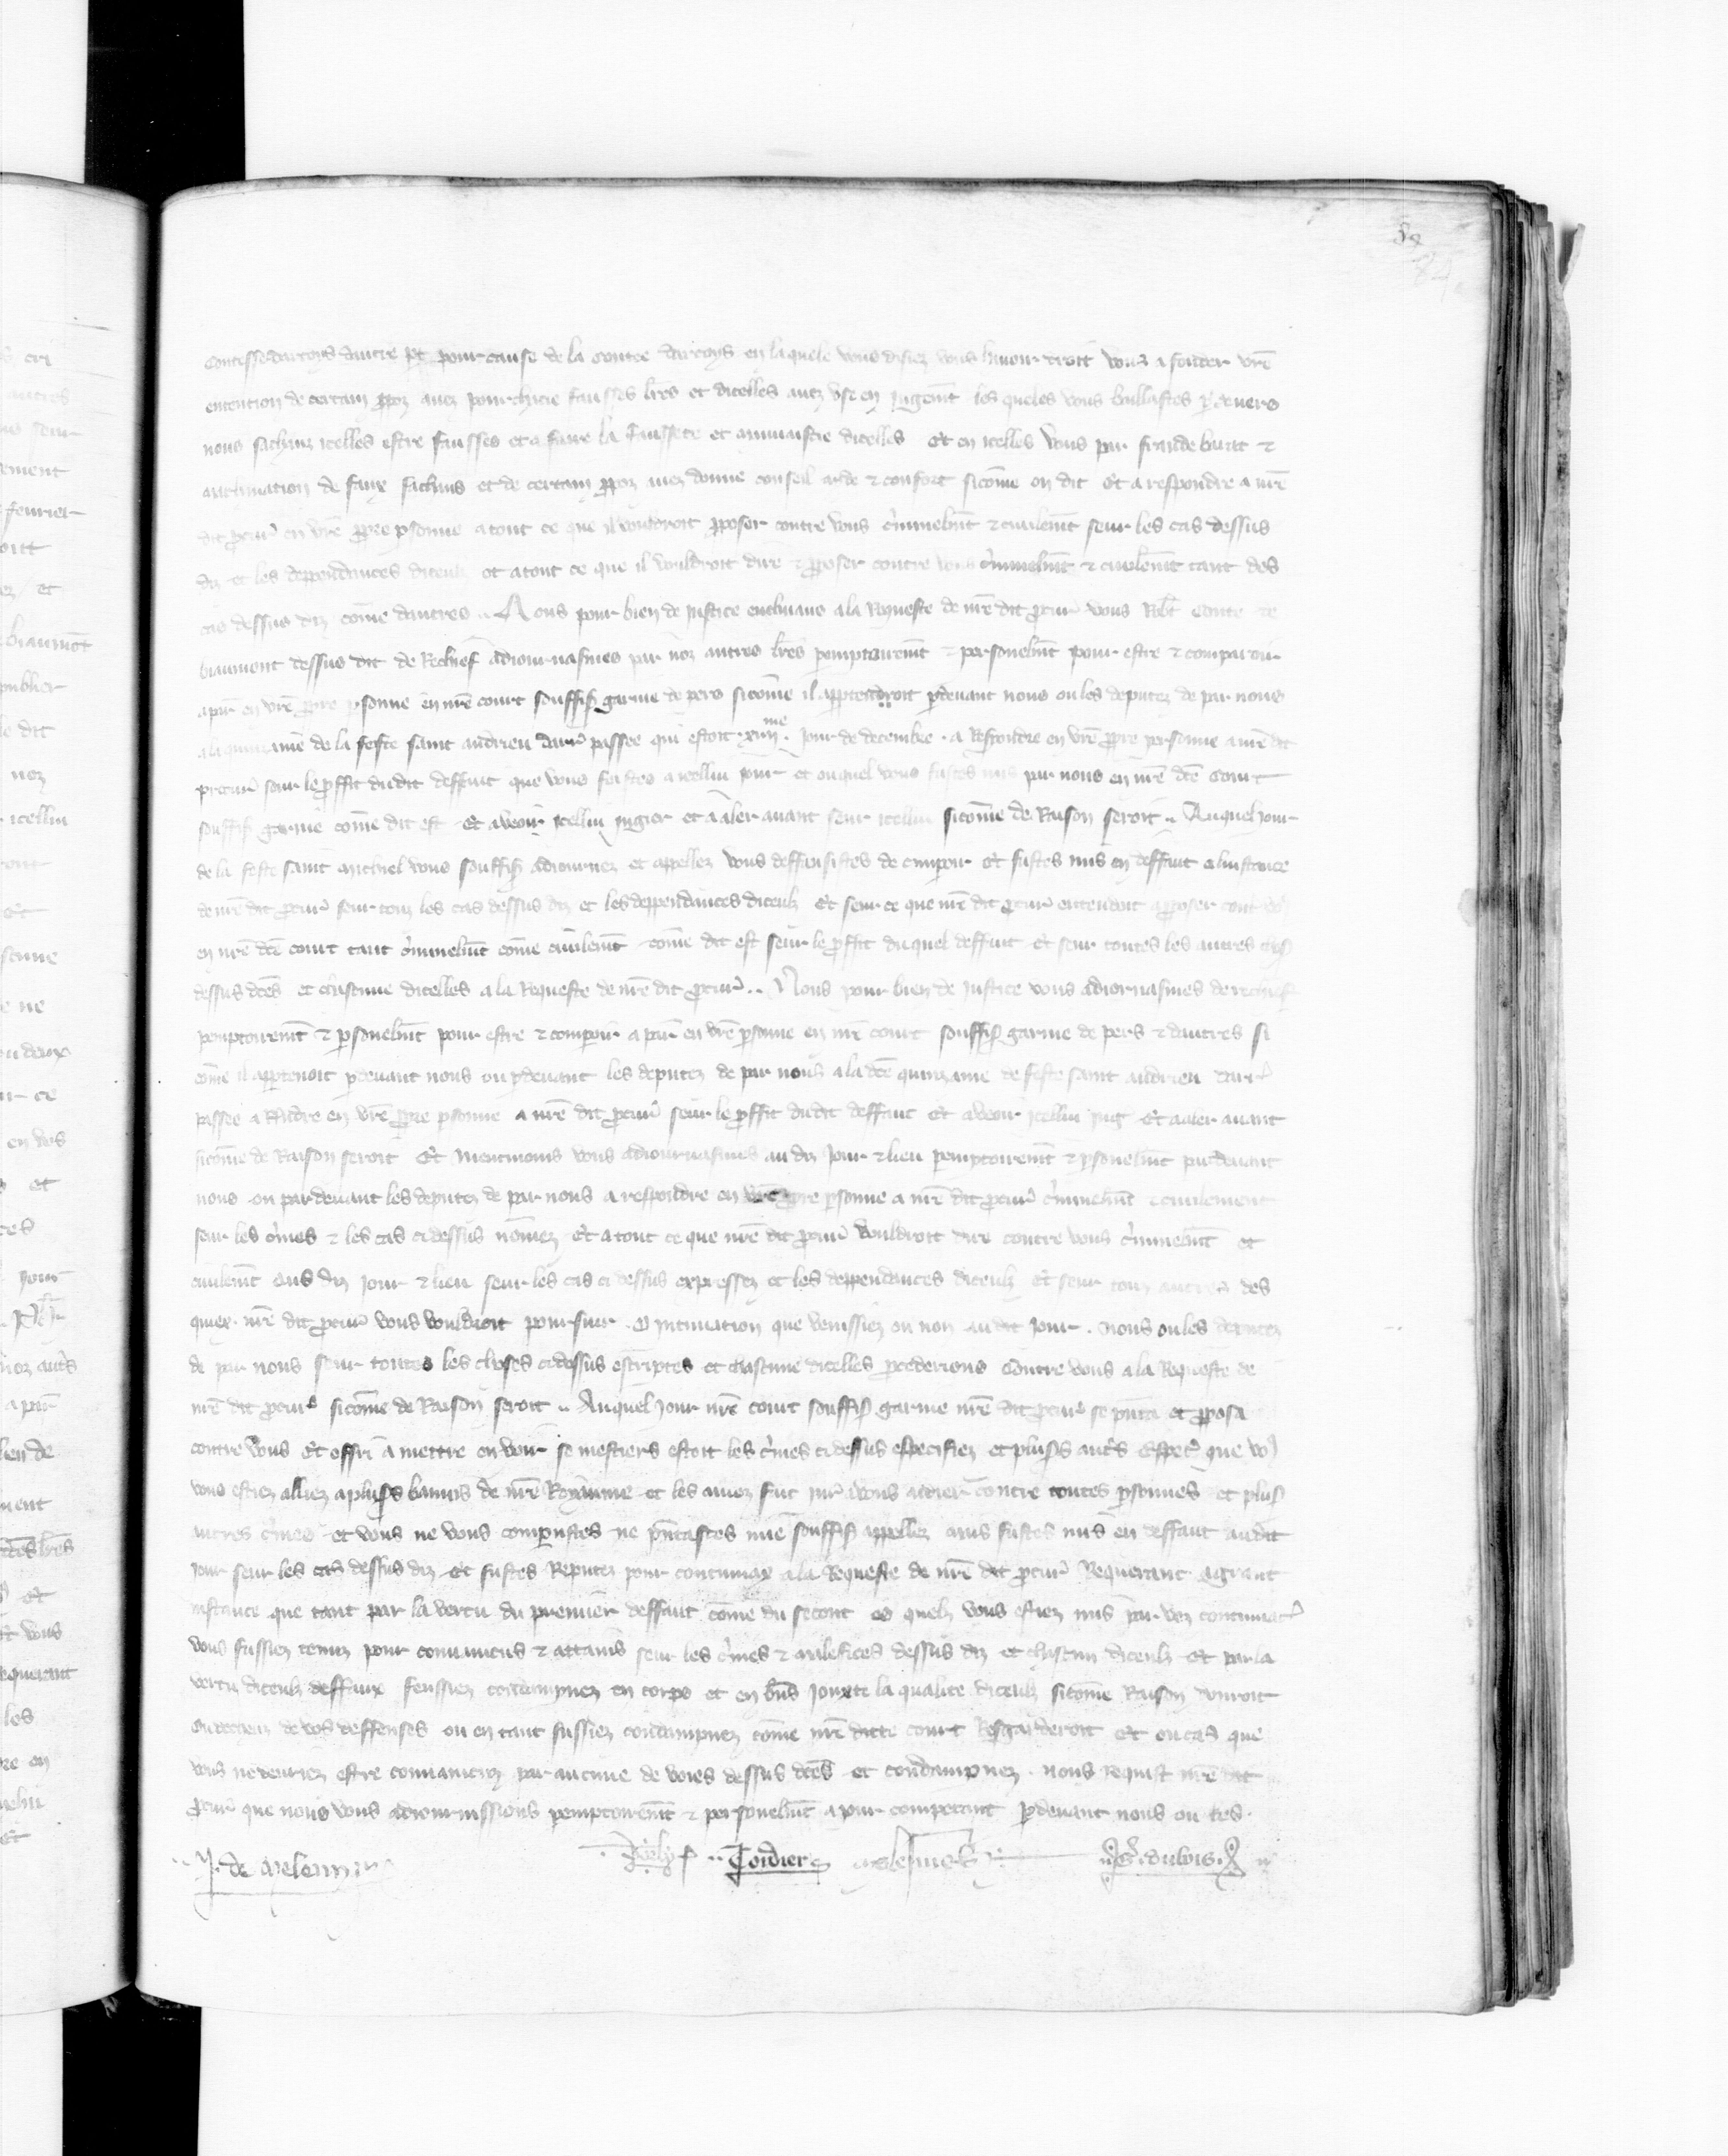 84
contesse dartoys dautre pt pour cause de la contee dartoys en laquele vous disiez vous havoir droit vous a fonder vrē
entention de certain ppoz avez pourchacie fausses lrēs et dicelles avez use en jugemt les queles vous baillastes p devers
nous sachanz icelles estre fausses et a faire la faussete et dicelles Et en icelles vous par fraude barat &
machination de faux sachans et de certain ppoz avez donne conseil aide & confort sicōme on dit Et a respondre a nrē
dit pcur en vrē ppre psonne a tout ce que il voudroit pposer contre vous criminelmt & civilemt seur les cas dessus
diz et les deppendances diceulz et a tout ce que il vouldroit dire & pposer contre vous criminelmt & civilemt tant des
cas dessus diz cōme dautres .. Nous pour bien de justice enclinans a la Requeste de nrē dit pcur vous Robt conte de
biaumont dessus dit de Rechief adjournasmes par noz autres lrēs pemptoiremt & personelmt pour estre & comparoir
a pair en vrē ppre psonne en nrē court souffisā garnie de pers sicōme il apptendroit pdevant nous ou les deputez de par nous
a la quinzaine de la feste saint andrieu darr passee qui estoit xiiiime jour de decembre . a Respondre en vrē ppre personne a nrē dit
procur seur le pffit dudit deffaut que vous feistes a icellui jour et ouquel vous fustes mis par nous en nrē dcē court
souffisā garnie cōme dit est Et a veoir icellui jugier et a aler avant seur icellui sicōme de Raison seroit .. Auquel jour
de la feste saint michiel vous souffisā adjournez et appellez vous deffausistes de comparoir Et fustes mis en deffaut a linstance
de nrē dit pcur seur touz les cas dessus diz et les deppendances diceulz Et seur ce que nrē dit pcur entendoit a pposer cont vo
en nrē dcē court tant criminelmt cōme civilemt cōme dit est seur le pffit duquel deffaut Et seur toutes les autres chos
dessus dcēs et chascune dicelles a la Requeste de nrē dit pcur .. Nous pour bien de justice vous adjornasmes de rechief
pemptoiremt & psonelmt pour estre & comparoir a pair en vrē psonne en nrē court souffisā garnie de pers & dautres si
cōme il apptenoit pdevant nous ou pdevant les deputez de par nous a la dcē quinzaine de feste saint andrieu darr
passee a Rndre en vrē ppre psonne a nrē dit pcur seur le pffit dudit deffaut Et a veoir icellui jug Et a aler avant
sicōme de Raison seroit Et neentmoins vous adjournasmes au diz jour & lieu pemptoiremt & psonelmt pardevant
nous ou pardevant les deputez de par nous a respondre en vrē ppre psonne a nrē dit pcur criminelmt & civilement
seur les crimes & les cas ci dessus nōmez Et a tout ce que nrē dit pcur vouldroit dire contre vous criminelmt et
civilemt aus diz jour & lieu seur les cas ci dessus expressez et les deppendances diceulz Et seur touz autres des
quiex nrē dit pcur vous vouldroit poursuir . O intimation que venissiez ou non au dit jour . nous ou les deputez
de par nous seur toutes les choses ci dessus escriptes et chascune dicelles pcederions contre vous a la Requeste de
nrē dit pcur sicōme de Raison seroit .. Auquel jour nrē court souffisā garnie nrē dit pcur se pnta et pposa
contre vous Et offri a mettre en voir se mestiers estoit les crimes ci dessus especifiez et plusrs autrs Espec que vo
vous estiez alliez a plusrs banniz de nrē Royaume et les aviez fait jurr a vous aidier contre toutes psonnes et plusrs
autres crimes et vous ne vous comparustes ne pntastes mie souffisā appellez mais fustes mis en deffaut audit
jour seur les cas dessus diz Et fustes Reputez pour contumax a la Requeste de nrē dit pcur Requerant a grant
instance que tant par la vertu du premier deffaut cōme du secont es quelz vous estiez mis par voz contumac
vous fussiez tenuz pour convaincus & attains seur les crimes & malefices dessus diz et chascun diceulz Et par la
vertu diceulz deffaux feussiez condampnez en corps et en bns jouxte la qualite diceulz sicōme Raison donroit
de vos deffenses ou en tant fussiez condampnez cōme nrē dicte court Resgarderoit Et ou cas que
vous ne devriez estre convaincuz par aucune de voies dessus dcēs et condampnez . nous requist nrē dit
pcur que nous vous adjournissions pemptoiremt & personelmt a jour competant pdevant nous ou les
J. de meleun
Tordiers
G. dubois